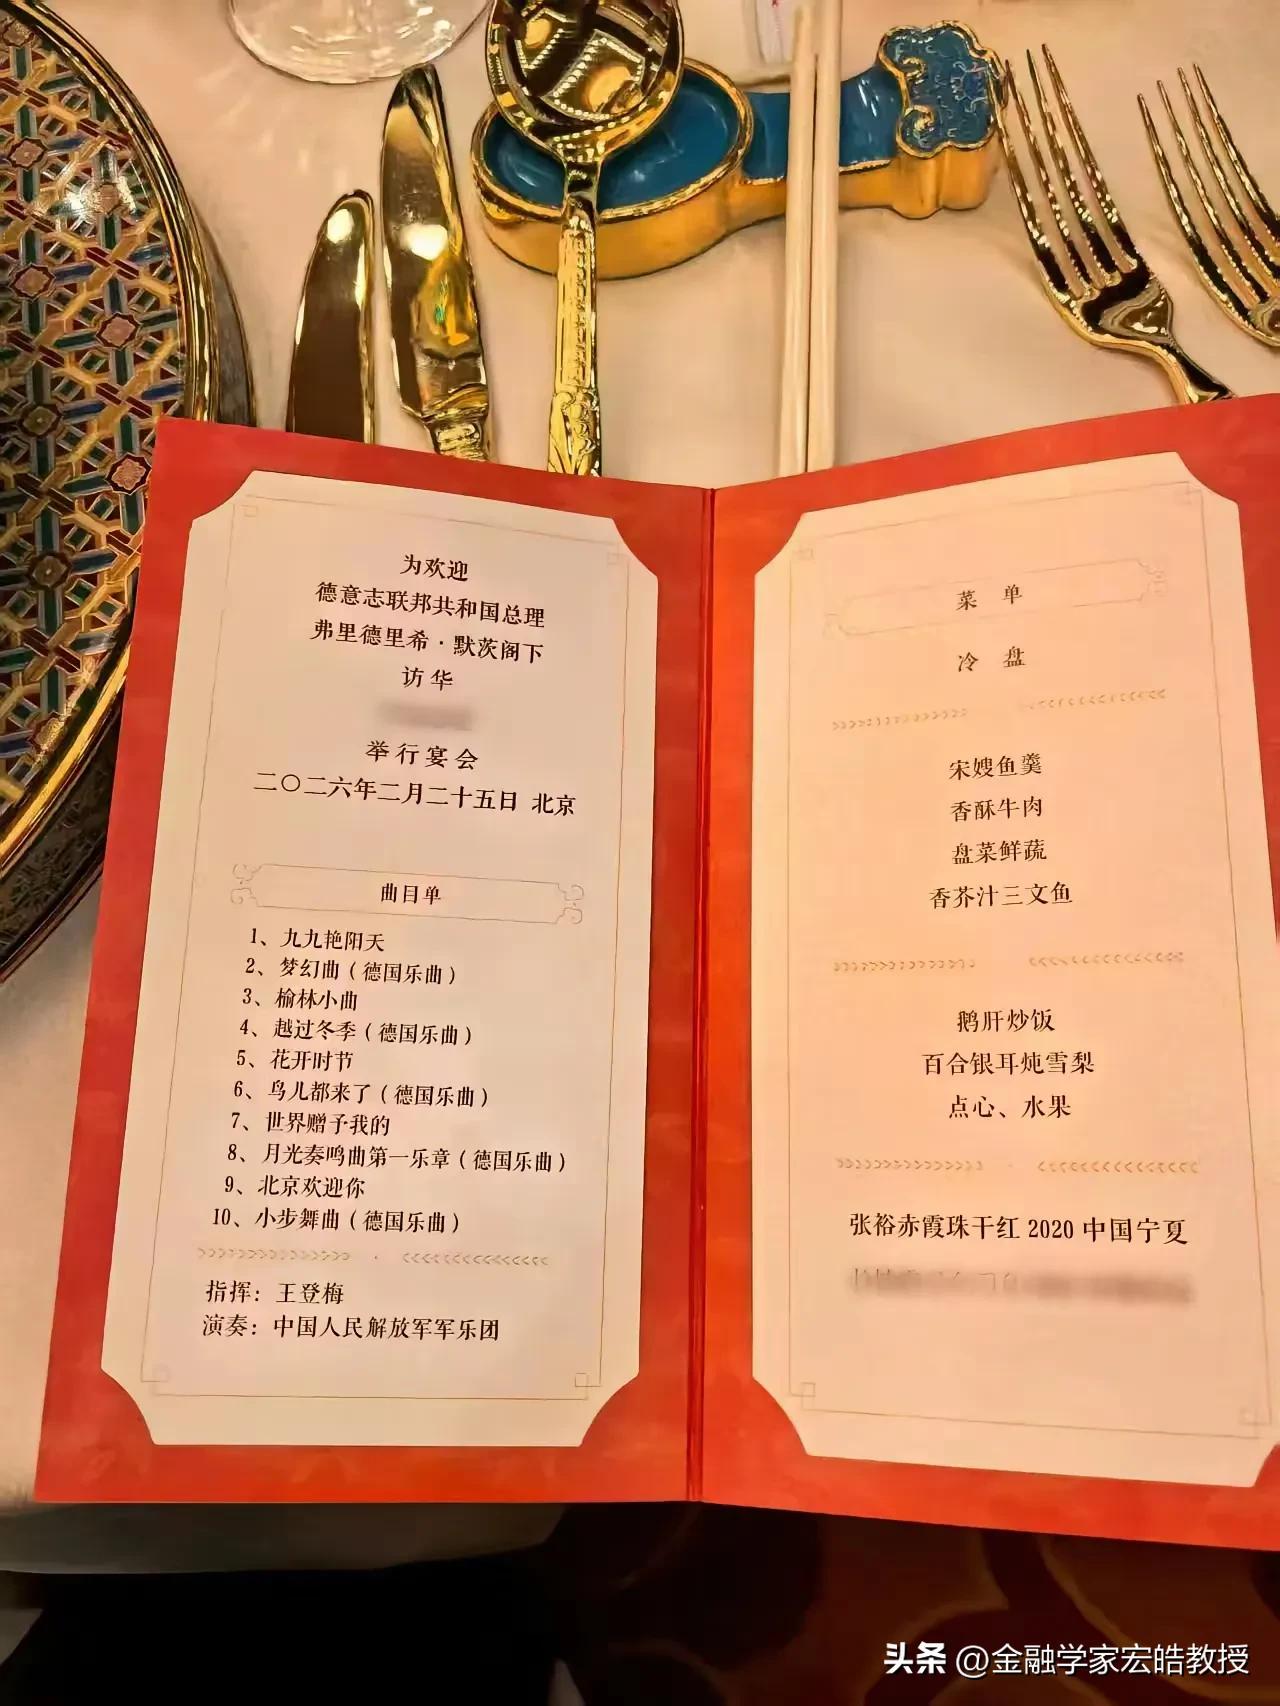 为欢迎
德意志联邦共和国总理
弗里德里希·默茨阁下
访华
举行宴会
二〇二六年二月二十五日 北京
曲目单
1、九九艳阳天
2、梦幻曲（德国乐曲）
3、榆林小曲
4、越过冬季（德国乐曲）
5、花开时节
6、鸟儿都来了（德国乐曲）
7、世界赠予我的
8、月光奏鸣曲第一乐章（德国乐曲）
9、北京欢迎你
10、小步舞曲（德国乐曲）
指挥：王登梅
演奏：中国人民解放军军乐团
菜 单
冷 盘
宋嫂鱼羹
香酥牛肉
盘菜鲜蔬
香芥汁三文鱼
鹅肝炒饭
百合银耳炖雪梨
点心、水果
张裕赤霞珠干红 2020 中国宁夏
头条 @金融学家宏皓教授